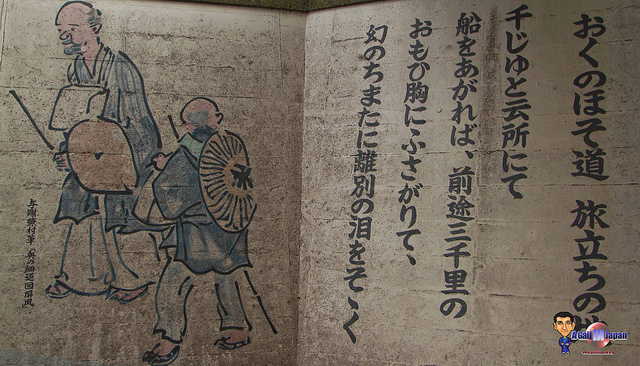 おくのほそ道 旅立ちの
千じゆと云所にて
船をあがれば、前途三千里の
おもひ胸にふさがりて、
幻のちまたに離別の泪をそゝく
与謝蕪村筆「奥の細道図屏風」
Japan